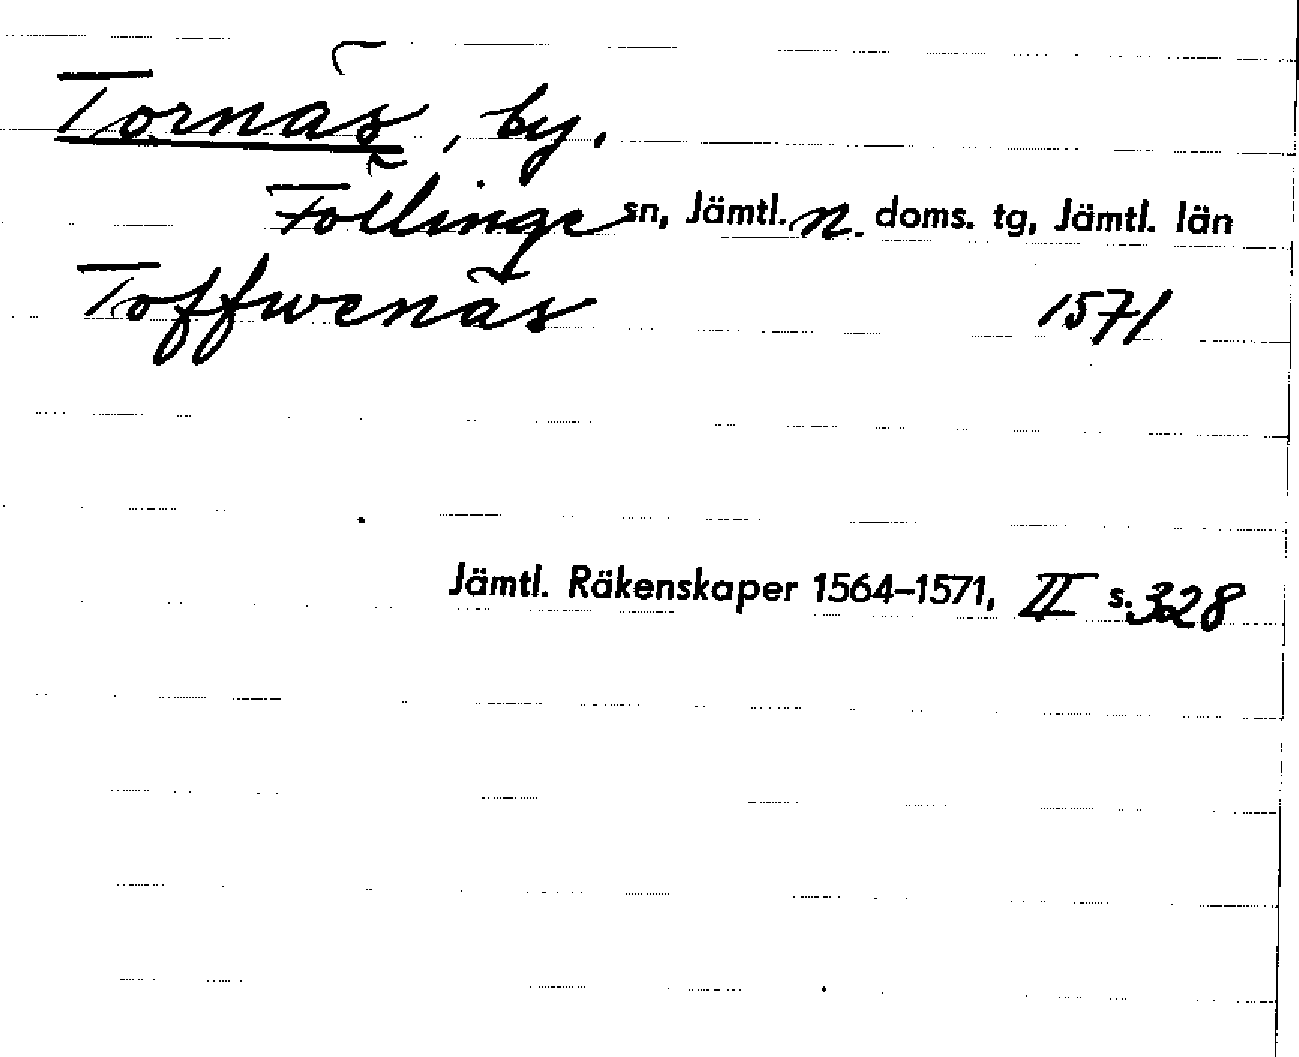 Tornäs, by.
Föllinge sn, Jämtl. n. doms. tg, Jämtl. län
Toffwenäs 1571
Jämtl. Räkenskaper 1564–1571, II s. 328